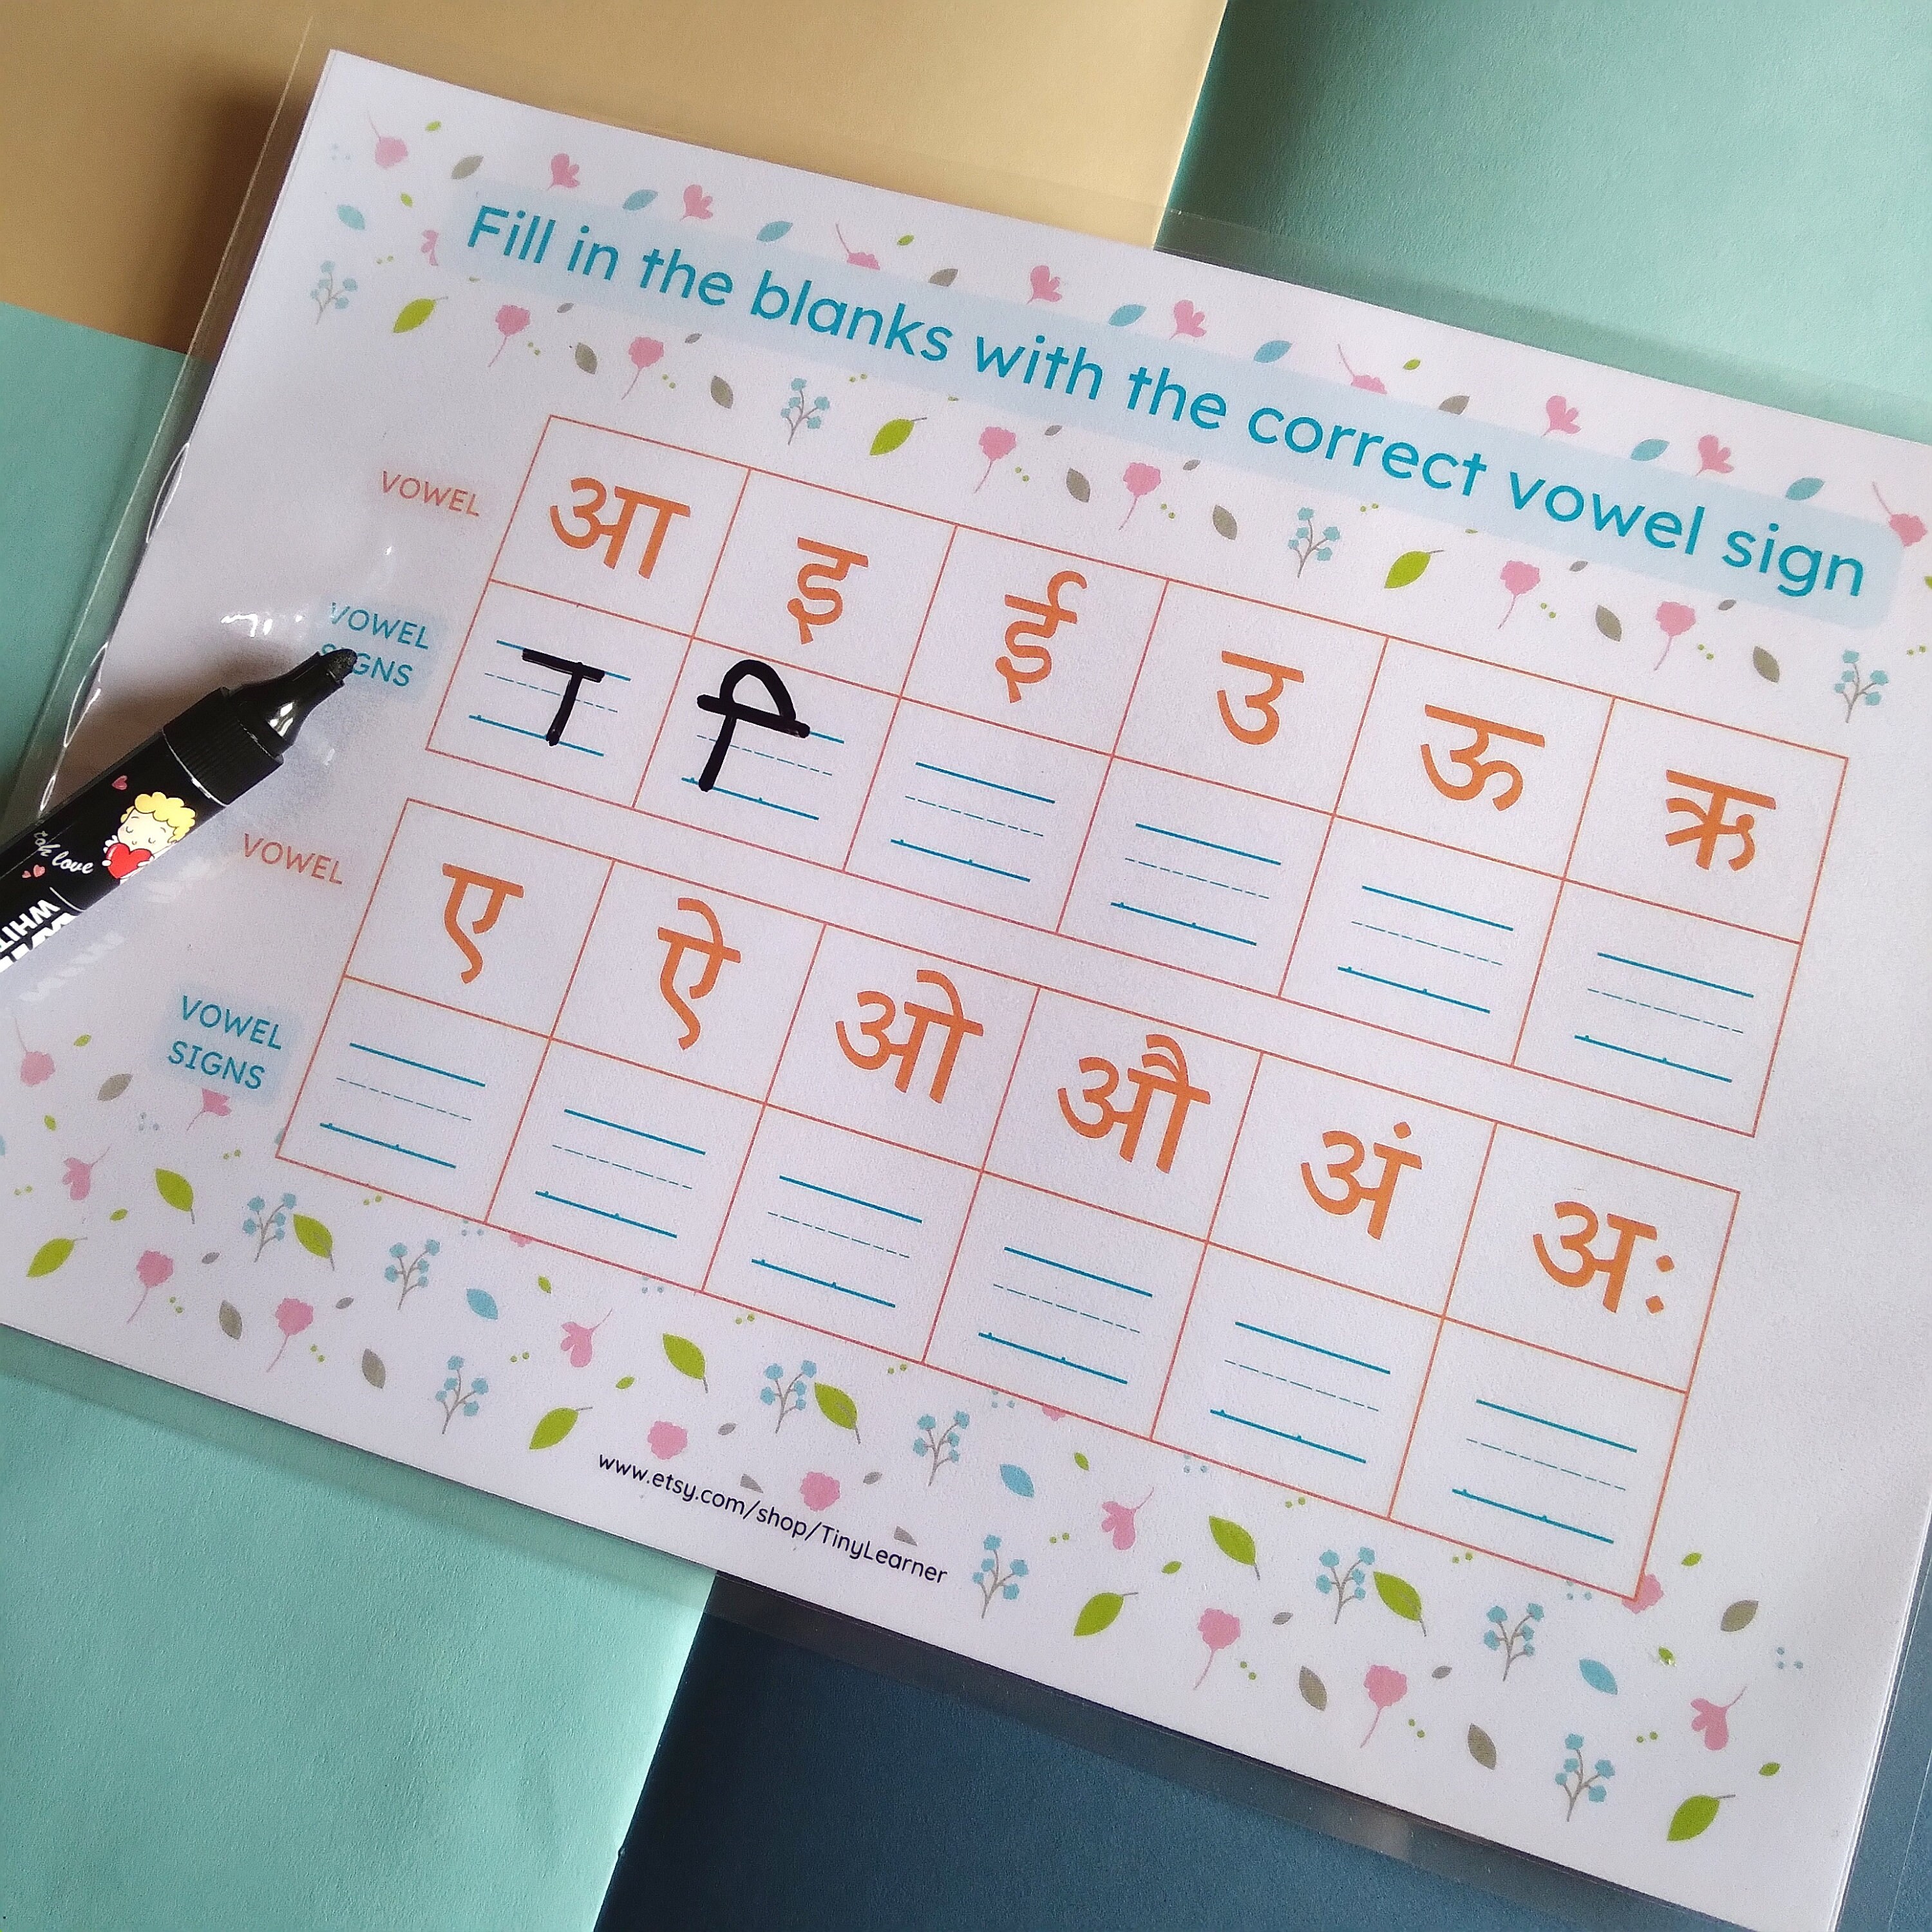 Fill in the blanks with the correct vowel sign
VOWEL आ इ ई उ ऊ ऋ
VOWEL SIGNS ा ि
VOWEL ए ऐ ओ औ अं अः
VOWEL
SIGNS
www.etsy.com/shop/TinyLearner
toh love